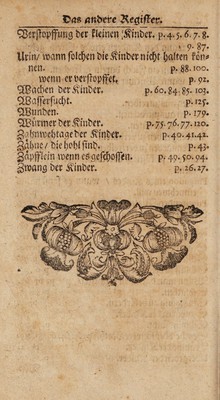 Das andere Register.
Verstopffung der kleinen Kinder. p. 4. 5. 6. 7. 8.
9. 87.
Urin/ wann solchen die Kinder nicht halten kön-
nen. p. 88. 100.
wenn er verstopffet. p. 92.
Wachen der Kinder. p. 60. 84. 85. 103.
Wassersucht. p. 125.
Wunden. p. 179.
Würmer der Kinder. p. 75. 76. 77. 120.
Zahnwehtage der Kinder. p. 40. 41. 42.
Zähne/ die hohl sind. p. 43.
Zäpfflein wenn es geschossen. p. 49. 50. 94.
Zwang der Kinder. p. 26. 27.